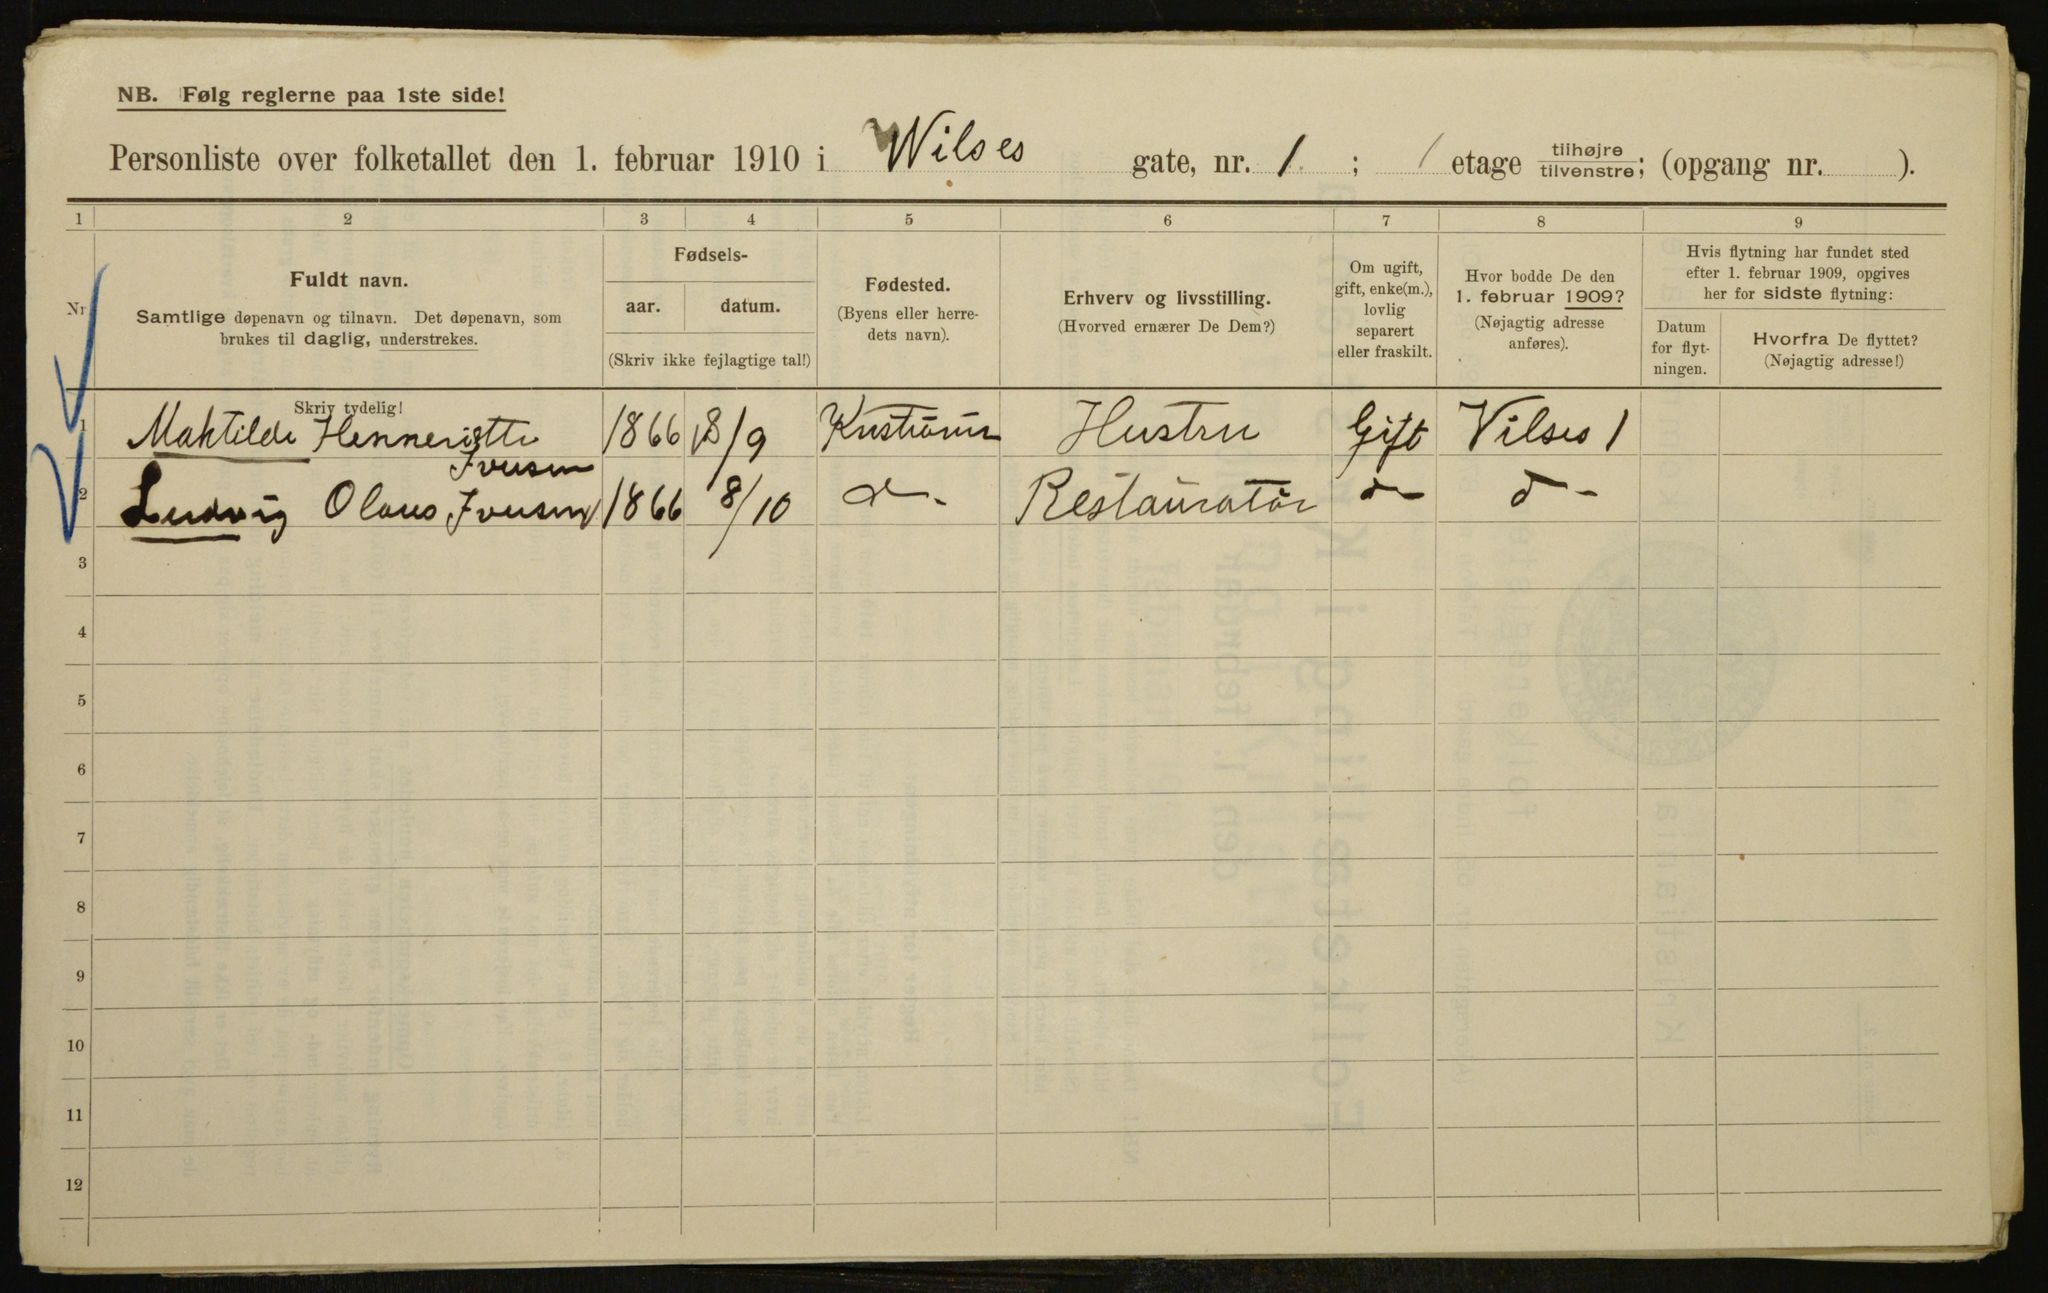 NB. Følg reglerne paa 1ste side!
Personliste over folketallet den 1. februar 1910 i Wilses gate, nr. 1 ; 1 etage tilhøjre tilvenstre; (opgang nr. ).
1 2 3 4 5 6 7 8 9
Nr.
Fuldt navn.
Samtlige døpenavn og tilnavn. Det døpenavn, som
brukes til daglig, understrekes.
Fødsels-
aar. datum.
(Skriv ikke fejlagtige tal!)
Fødested.
(Byens eller herre-
dets navn).
Erhverv og livsstilling.
(Hvorved ernærer De Dem?)
Om ugift,
gift, enke(m.),
lovlig
separert
eller fraskilt.
Hvor bodde De den
1. februar 1909?
(Nøjagtig adresse
anføres).
Hvis flytning har fundet sted
efter 1. februar 1909, opgives
her for sidste flytning:
Datum
for flyt-
ningen.
Hvorfra De flyttet?
(Nøjagtig adresse!)
Skriv tydelig!
1 Maktilde Henneriette Iversen 1866 18/9 Hustru Gift Vilses 1
2 Ludvig Olaus Iversen 1866 8/10 d- Restauratør d- d-
3
4
5
6
7
8
9
10
11
12